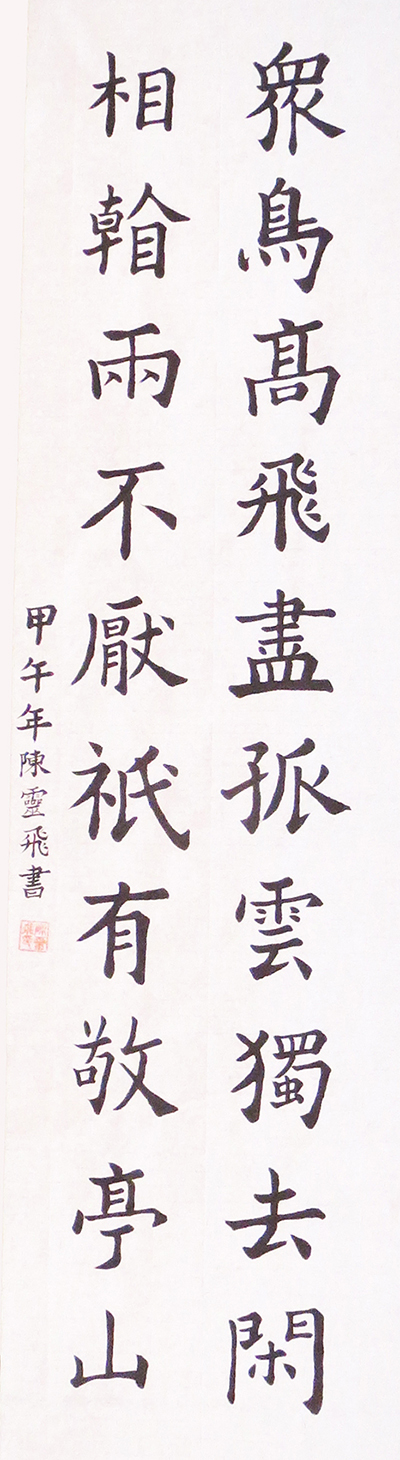 眾鳥高飛盡孤雲獨去閑
相看兩不厭祇有敬亭山
甲午年陳靈飛書